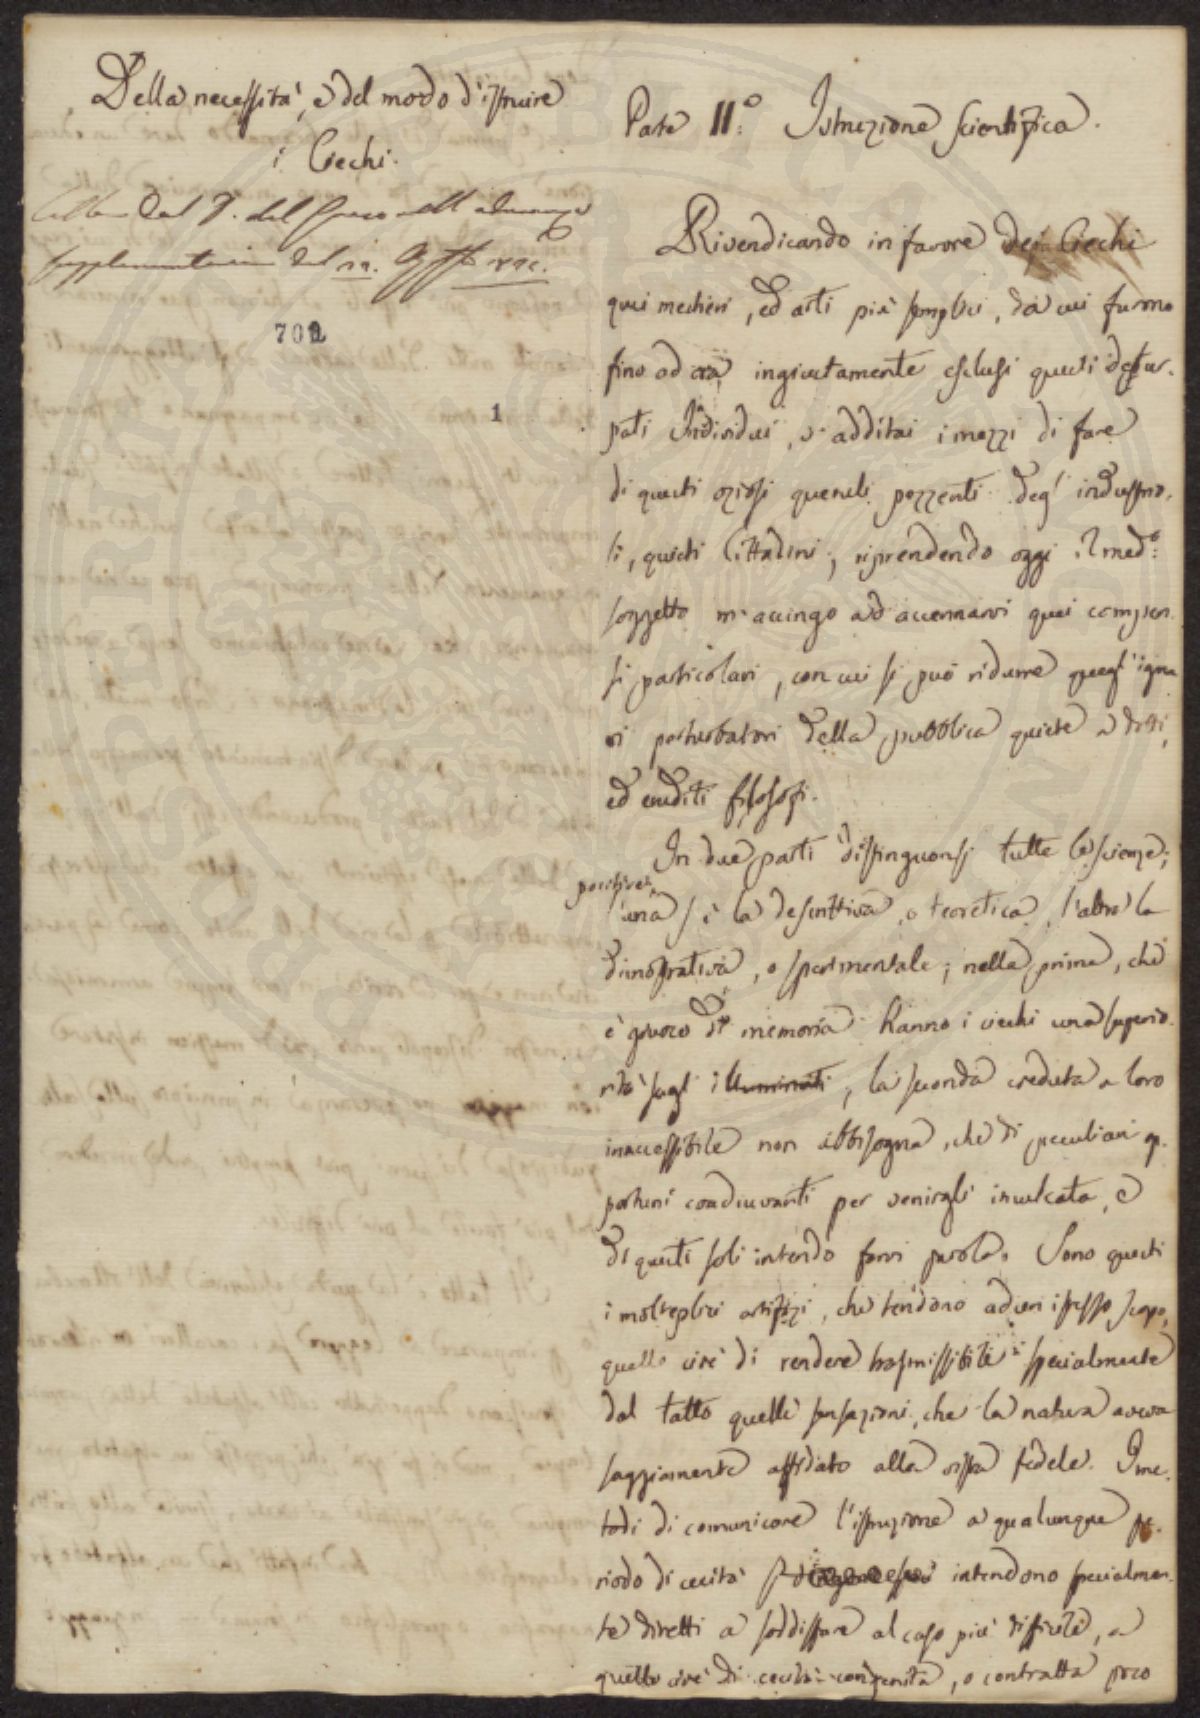 Della necessità, e del modo d'istruire
i Ciechi.
Letta dal D. del Greco nell'adunanza
supplementaria del 19. Agosto
702
1
Parte II.° Istruzione Scientifica.
Rivendicando in favore dei Ciechi
quei mestieri, ed arti più semplici, da cui furono
fino ad ora ingiustamente esclusi questi detur-
pati Individui, v'additai i mezzi di fare
di questi oziosi queruli pezzenti degl'industrio-
si, quieti Cittadini; riprendendo oggi il med.°
soggetto m'accingo ad accennarvi quei compen-
si particolari, con cui si può ridurre quegl'igna-
ri perturbatori della pubblica quiete a dotti,
ed eruditi filosofi.
In due parti distinguonsi tutte le scienze
positive,
l'una si è la descrittiva, o teoretica, l'altra la
dimostrativa, o sperimentale; nella prima, che
è giuoco di memoria hanno i ciechi una superio-
rità sugl'illuminati, la seconda creduta a loro
inaccessibile non abbisogna, che di peculiari op-
portuni coadiuvanti per venirgli inculcata, e
di questi soli intendo farvi parola. Sono questi
i molteplici artifizi, che tendono ad un istesso scopo,
quello cioè di rendere trasmissibili specialmente
dal tatto quelle sensazioni, che la natura aveva
saggiamente affidato alla vista fedele. I me-
todi di comunicare l'istruzione a qualunque pe-
riodo di cecità intendono specialmen-
te diretti a soddisfare al caso più difficile, a
quello cioè di cecità congenita, o contratta poco